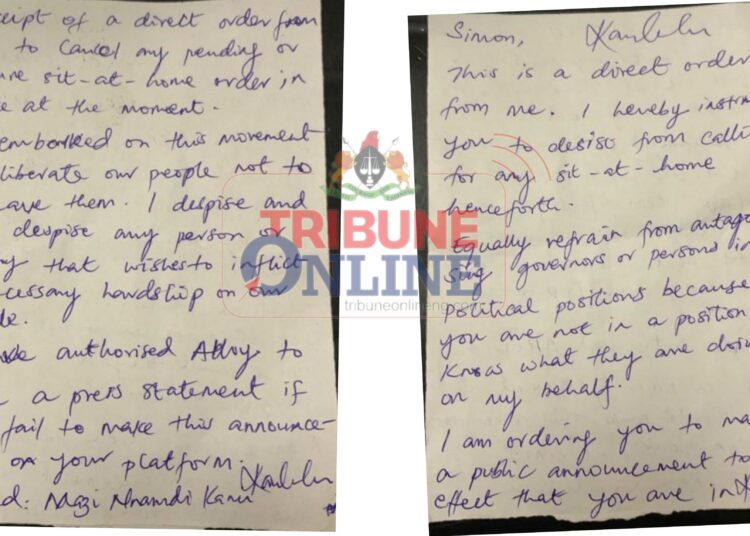 ceipt of a direct order from
to cancel any pending or
ure sit-at-home order in
e at the moment.
embarked on this movement
liberate our people not to
ave them. I despise and
despise any person or
y that wishes to inflict
cessary hardship on our
le.
authorised Alloy to
a press statement if
fail to make this announce-
on your platform.
d: Mazi Nnamdi Kanu
Simon,
This is a direct order
from me. I hereby instru
you to desist from calli
for any sit-at-home
henceforth.
Equally refrain from antago
sing governors or persons in
political positions because
you are not in a position
know what they are doin
on my behalf.
I am ordering you to ma
a public announcement to
effect that you are in
TRIBUNE
ONLINE
tribuneonlineng.com